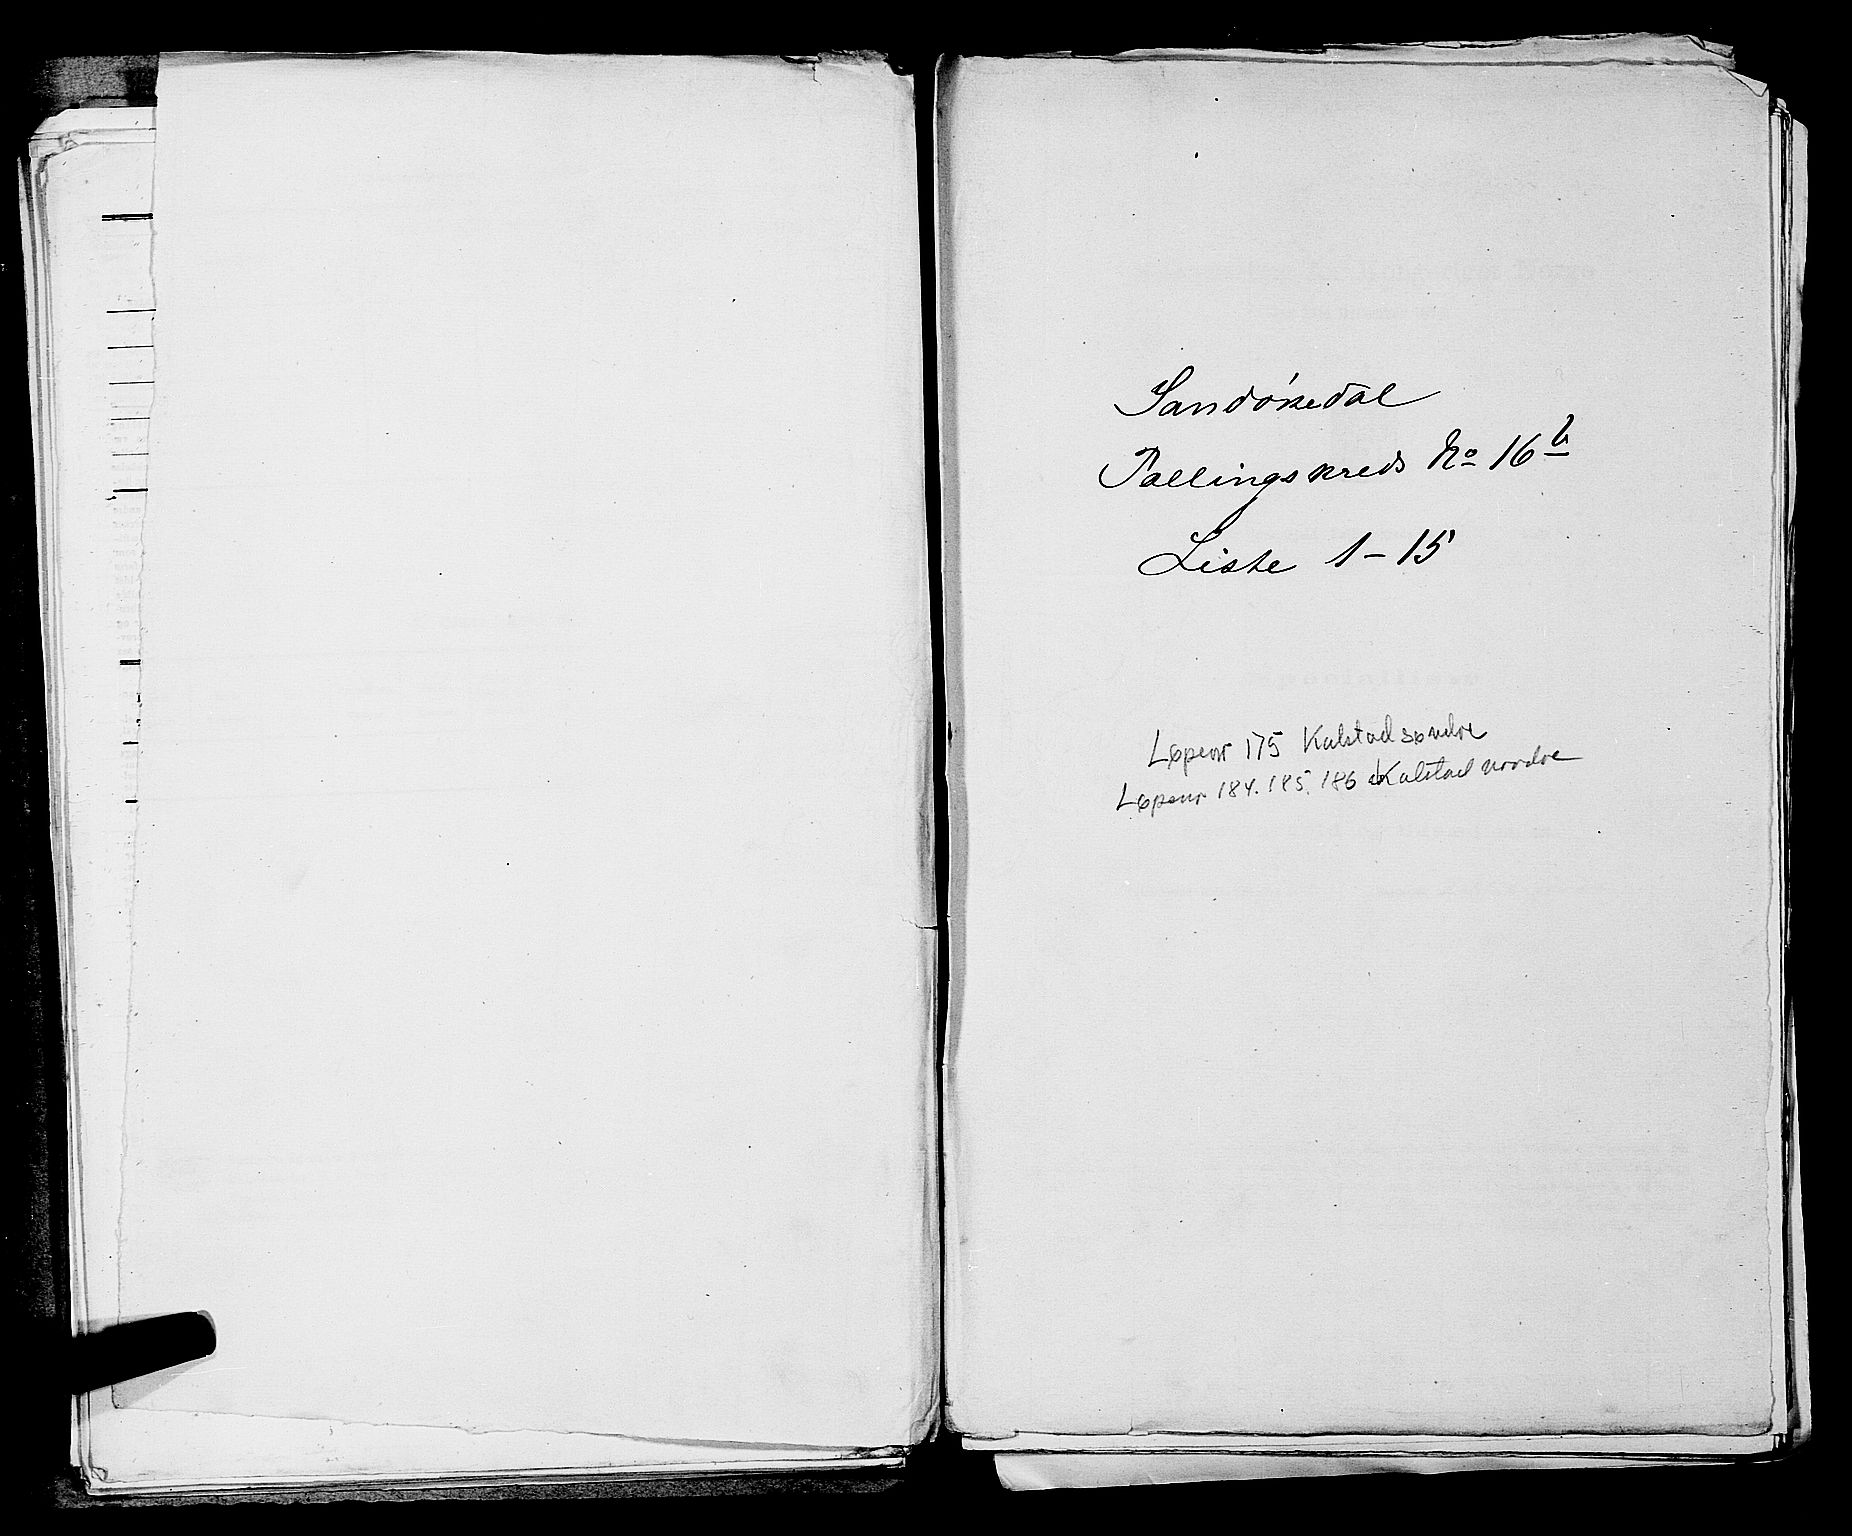 Sandökedal
Tællingskreds No 16b
Liste 1-15
Løpenr 175 Kalstad søndre
Løpenr 184. 185. 186 Kalstad nordre